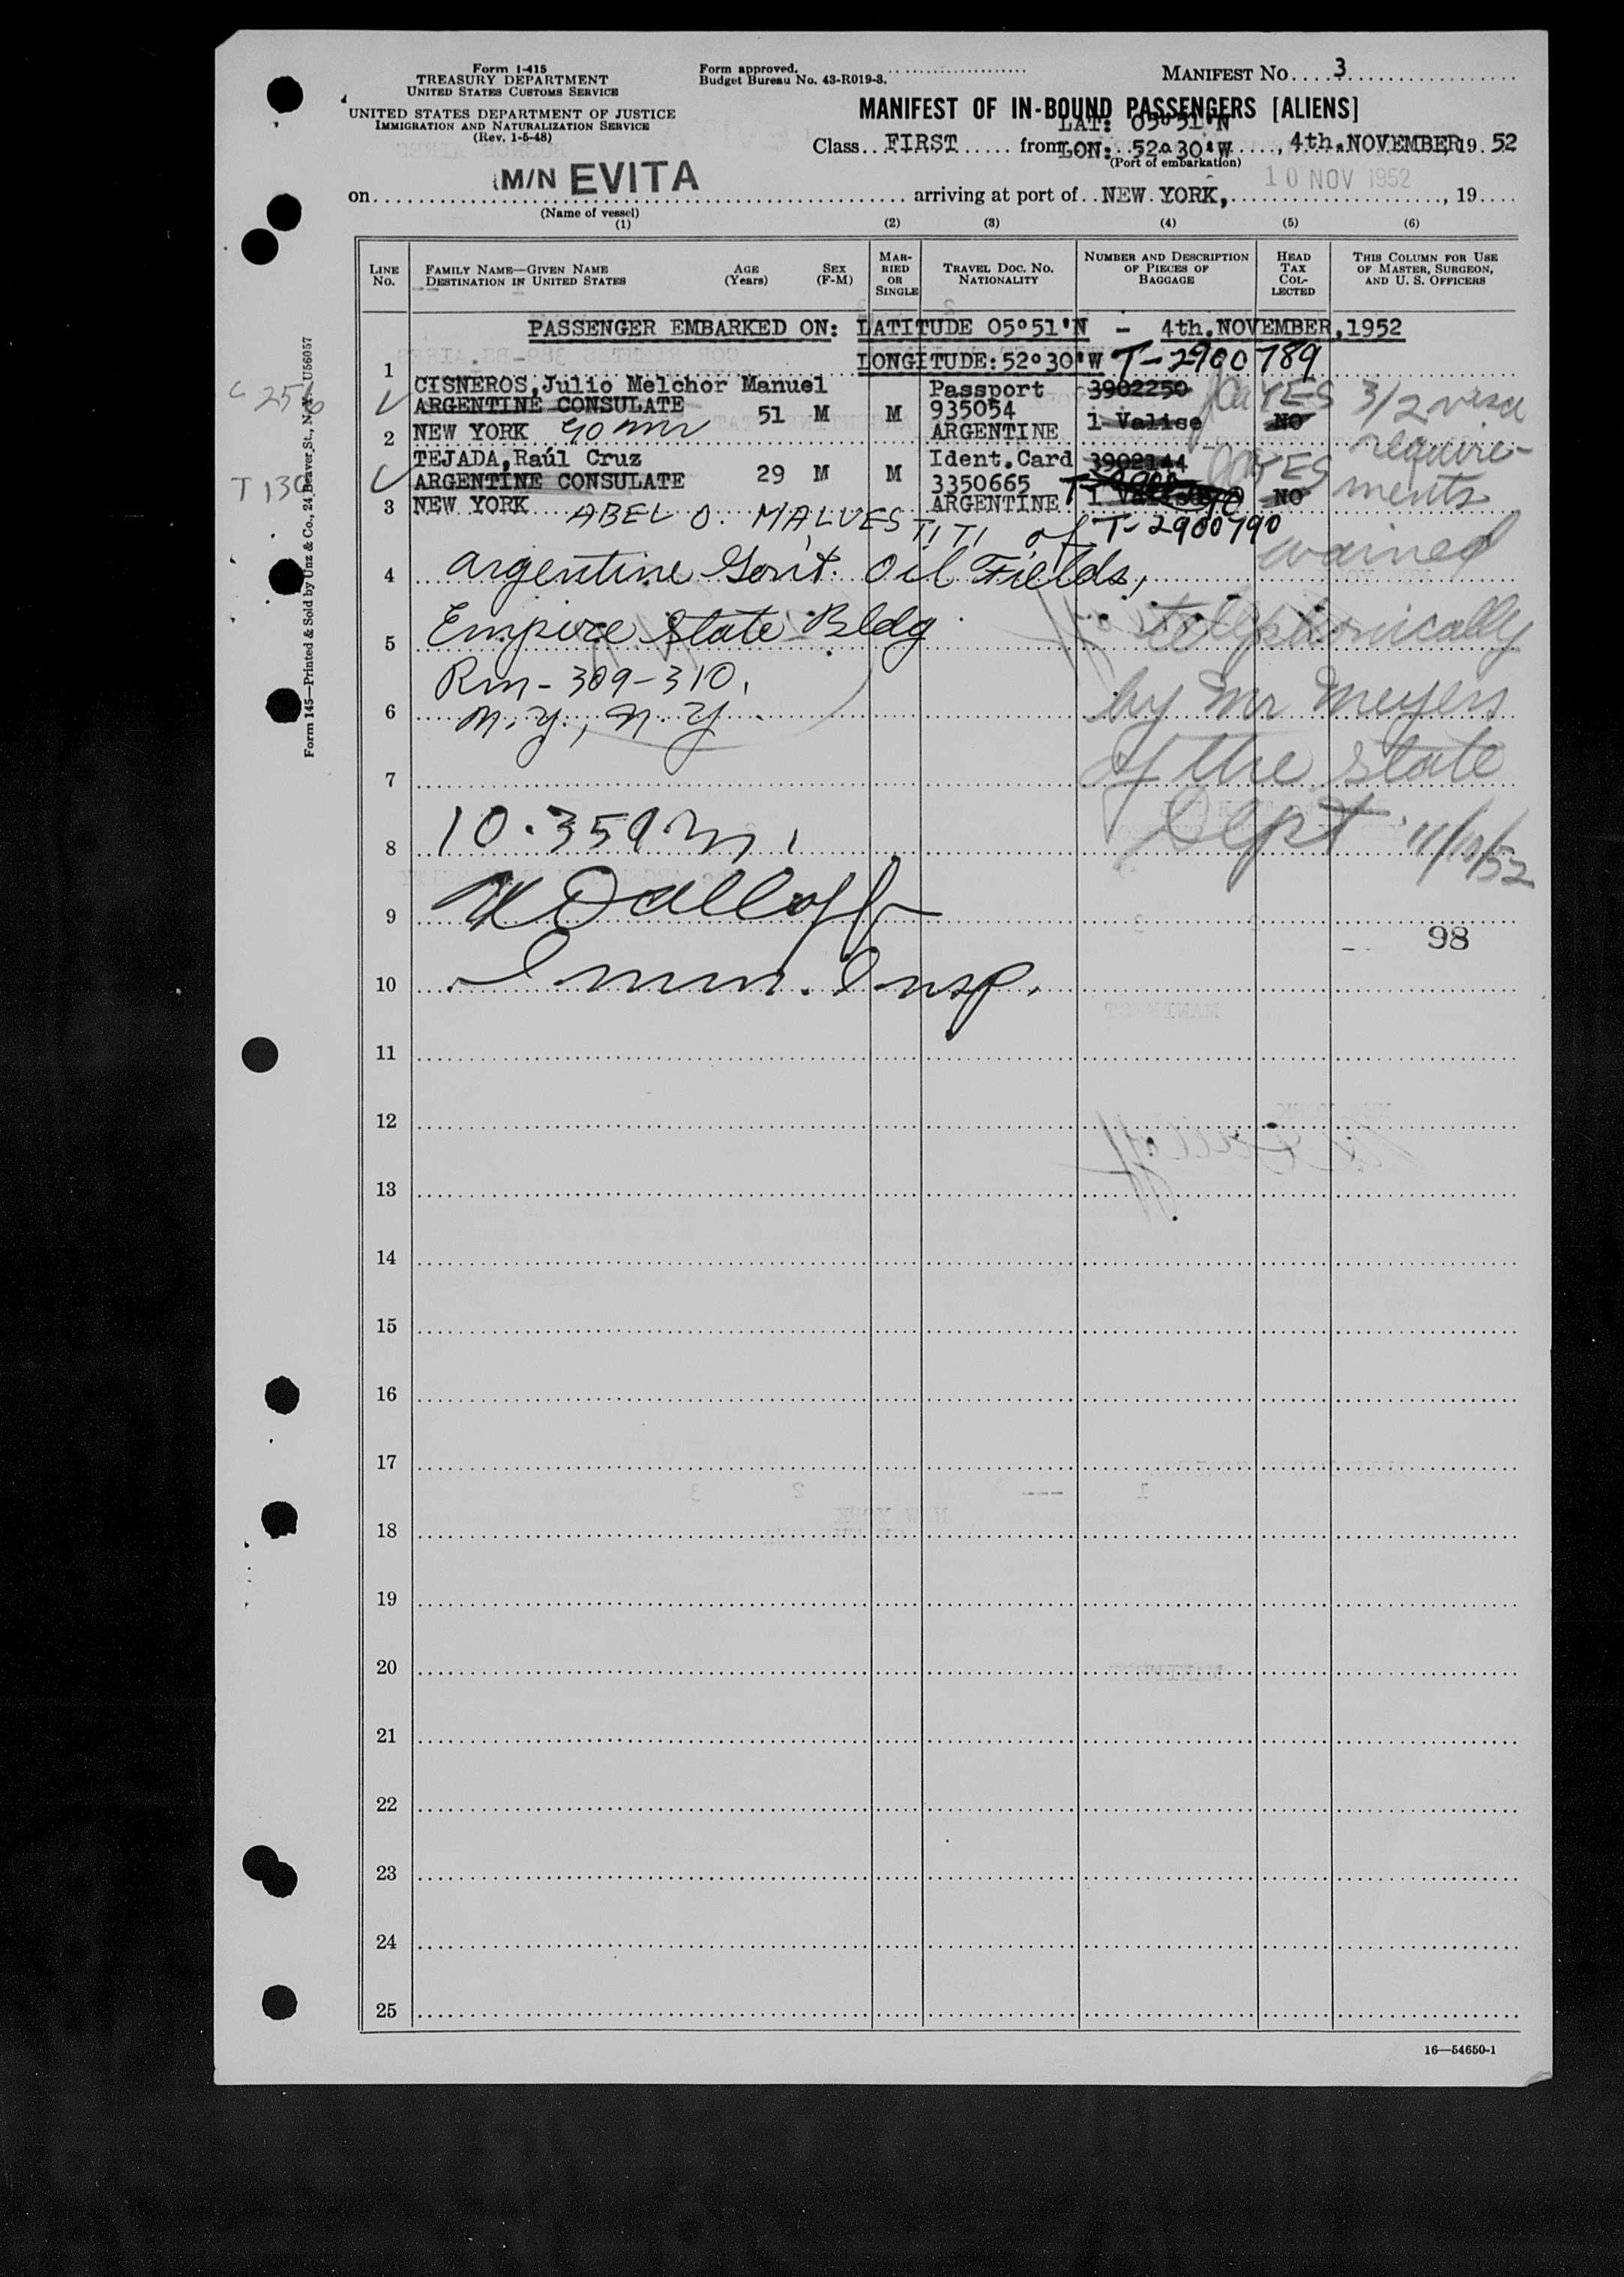 Form I-415
TREASURY DEPARTMENT
UNITED STATES CUSTOMS SERVICE
UNITED STATES DEPARTMENT OF JUSTICE
IMMIGRATION AND NATURALIZATION SERVICE
(Rev. 1-5-48)
Form approved.
Budget Bureau No. 43-R019-3.
MANIFEST NO....3
MANIFEST OF IN-BOUND PASSENGERS [ALIENS]
LAT: 05°51'N
Class..FIRST......from LON: 52°30'W....., 4th.NOVEMBER, 19.52
(Port of embarkation)
on M/N EVITA arriving at port of..NEW YORK, 10 NOV 1952, 19....
(Name of vessel)
(1) (2) (3) (4) (5) (6)
LINE NO.
FAMILY NAME—GIVEN NAME
DESTINATION IN UNITED STATES
AGE (Years)
SEX (F-M)
MARRIED OR SINGLE
TRAVEL DOC. NO. NATIONALITY
NUMBER AND DESCRIPTION OF PIECES OF BAGGAGE
HEAD TAX COLLECTED
THIS COLUMN FOR USE OF MASTER, SURGEON, AND U. S. OFFICERS
PASSENGER EMBARKED ON: LATITUDE 05°51'N - 4th.NOVEMBER,1952
1 LONGITUDE:52°30'W T-2900789
CISNEROS,Julio Melchor Manuel Passport 3902250 YES 3/2 visa
ARGENTINE CONSULATE 51 M M 935054 1 Valise NO
2 NEW YORK ARGENTINE require-
TEJADA,Raúl Cruz Ident.Card 3902144 YES
ARGENTINE CONSULATE 29 M M 3350665 ments
3 NEW YORK ARGENTINE 1 NO
ABEL O. MALVESTITI of T-2900790
waived
4 Argentine Gov't. Oil Fields,
5 Empire State Bldg telephonically
Rm-309-310,
6 N.Y., N.Y. by Mr Meyers
7 of the State
8 10.35a.m. Dept 11/10/52
9
98
10 Imm. Insp.
11
12
13
14
15
16
17
18
19
20
21
22
23
24
25
16—54650-1
Form 145—Printed & Sold by Unz & Co., 24 Beaver St., N.Y. U56057
C 256
T 130